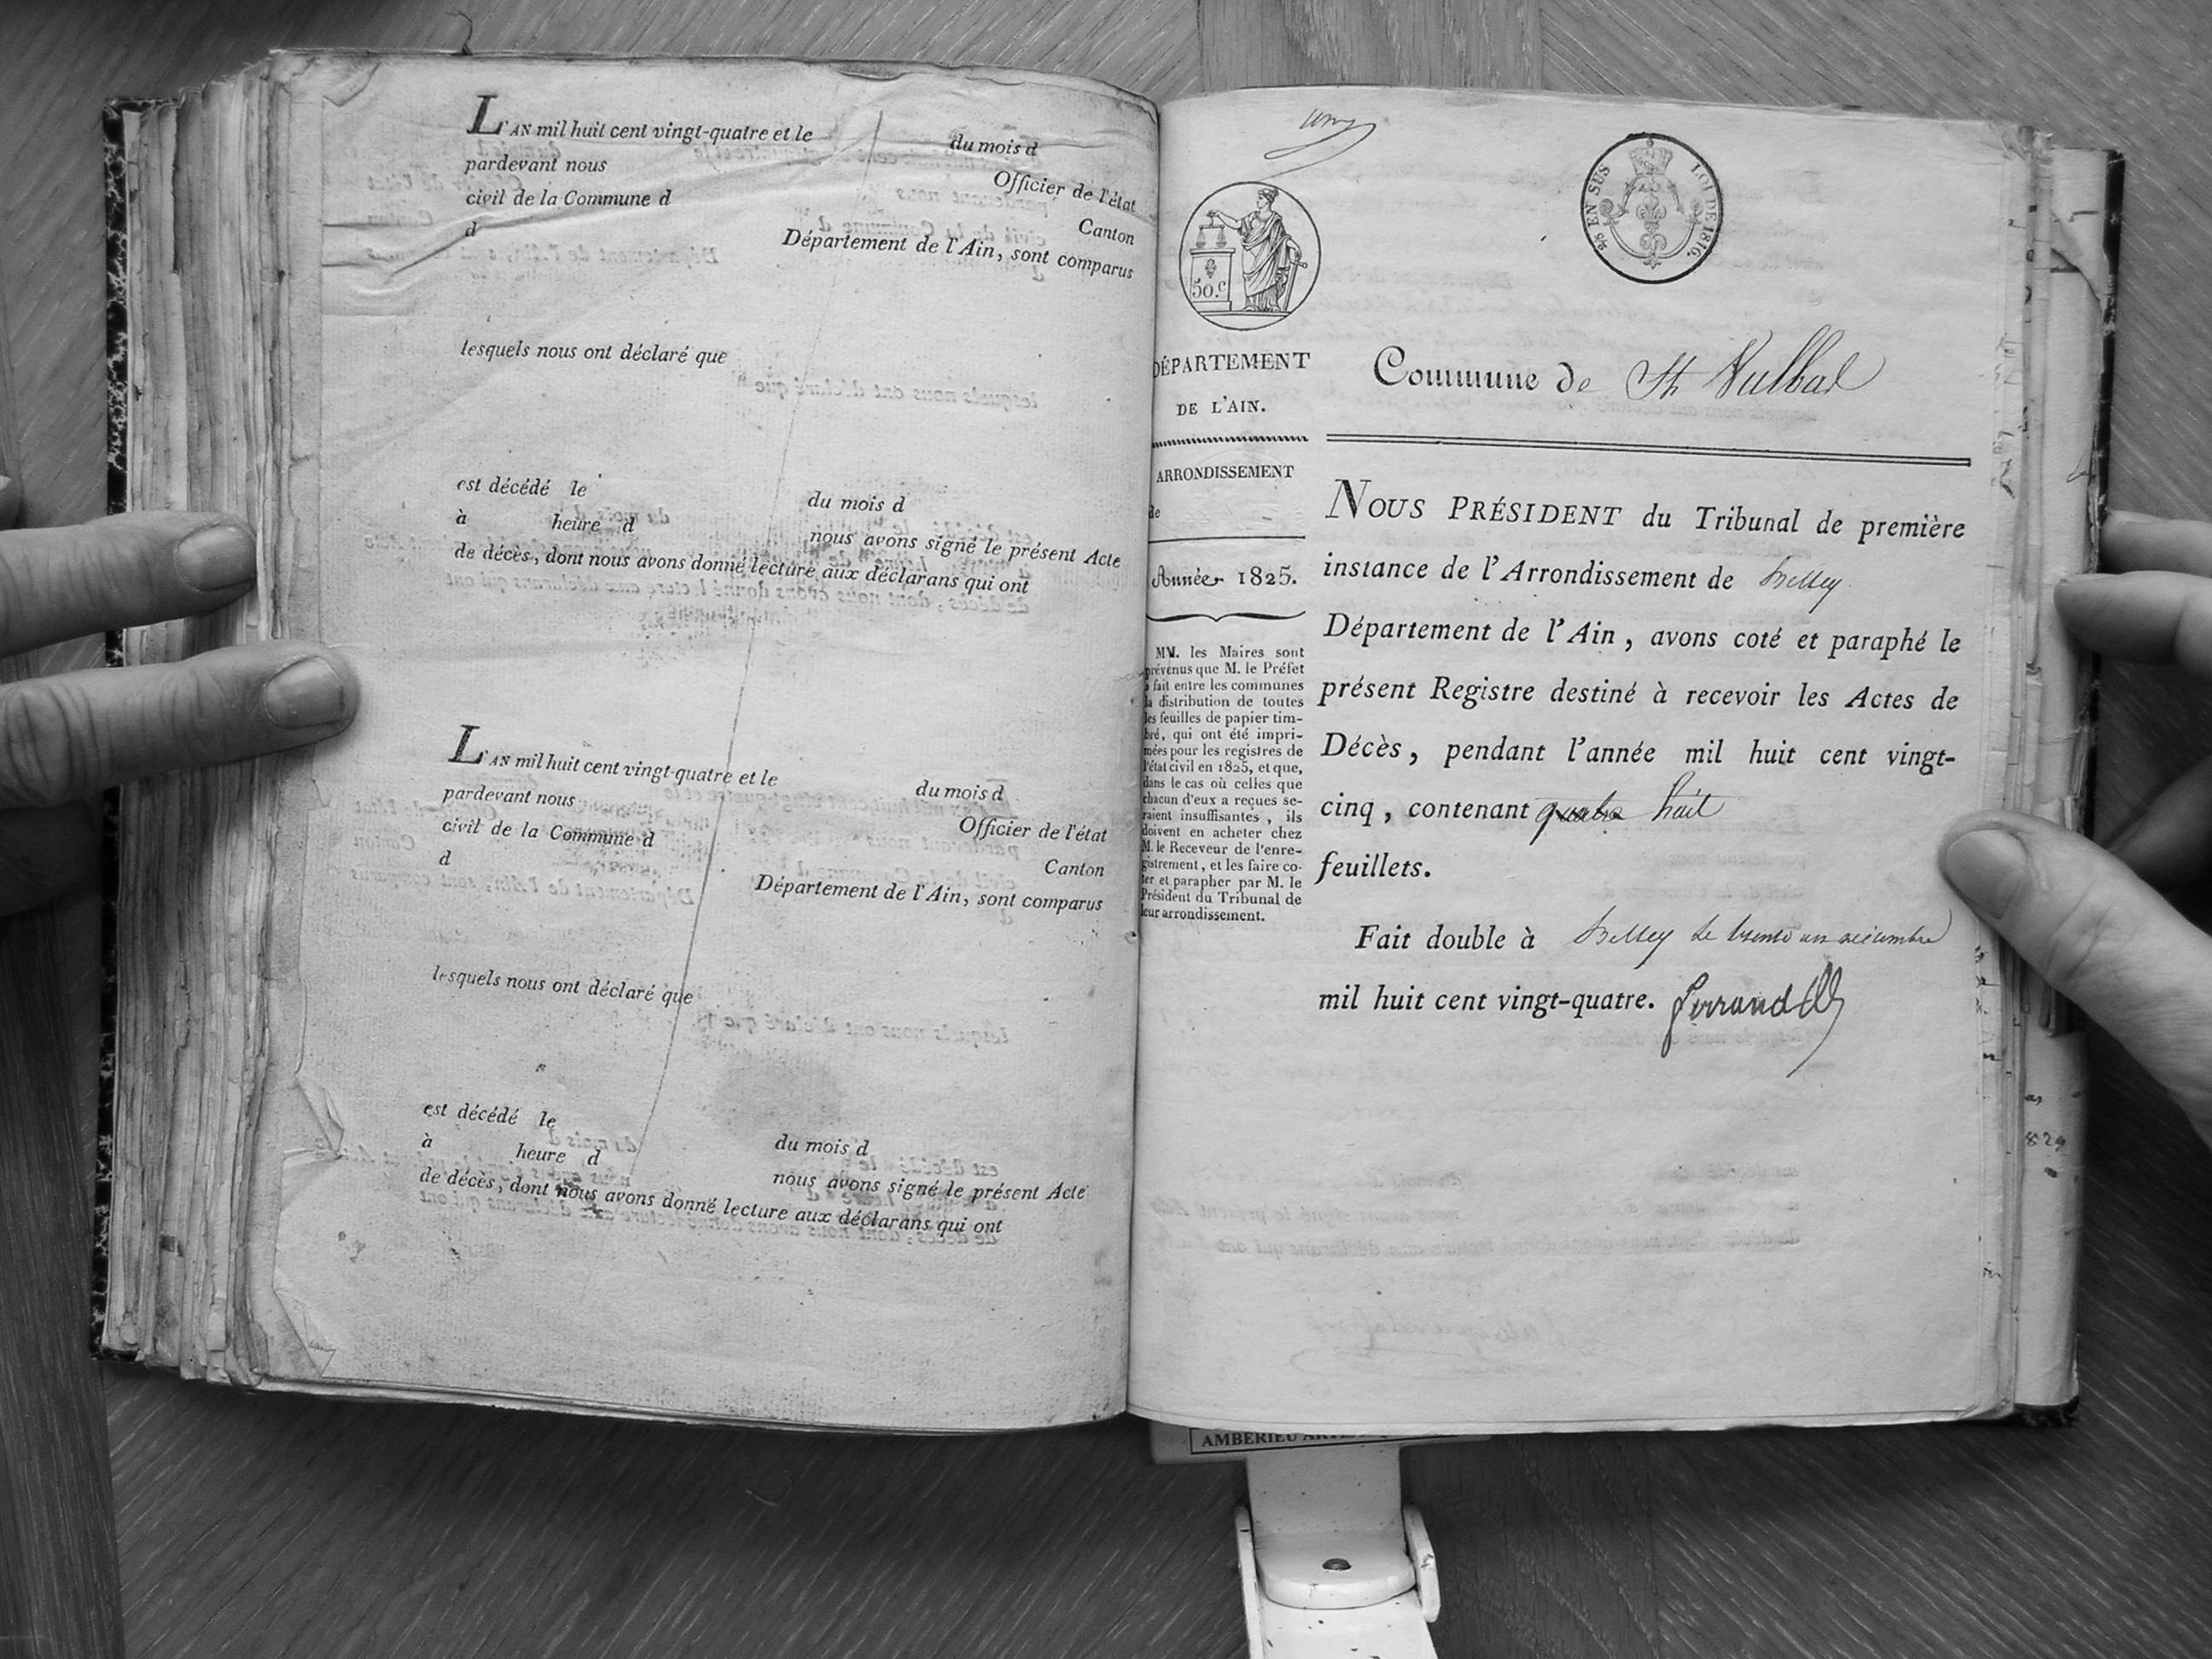 L'AN mil huit cent vingt-quatre et le du mois d
pardevant nous Officier de l'état
civil de la Commune d Canton
d Département de l'Ain, sont comparus
lesquels nous ont déclaré que
est décédé le du mois d
à heure d nous avons signé le présent Acte
de décès, dont nous avons donné lecture aux déclarans qui ont
L'AN mil huit cent vingt-quatre et le du mois d
pardevant nous Officier de l'état
civil de la Commune d Canton
d Département de l'Ain, sont comparus
lesquels nous ont déclaré que
est décédé le du mois d
à heure d nous avons signé le présent Acte
de décès, dont nous avons donné lecture aux déclarans qui ont
50.c
EN SUS LOI DE 1816.
DÉPARTEMENT
DE L'AIN.
ARRONDISSEMENT
de
Année 1825.
MM. les Maires sont
prévenus que M. le Préfet
a fait entre les communes
la distribution de toutes
les feuilles de papier tim-
bré, qui ont été impri-
mées pour les registres de
l'état civil en 1825, et que,
dans le cas où celles que
chacun d'eux a reçues se-
raient insuffisantes, ils
doivent en acheter chez
M. le Receveur de l'enre-
gistrement, et les faire co-
ter et parapher par M. le
Président du Tribunal de
leur arrondissement.
Commune de St Vulbas
NOUS PRÉSIDENT du Tribunal de première
instance de l'Arrondissement de Belley
Département de l'Ain, avons coté et paraphé le
présent Registre destiné à recevoir les Actes de
Décès, pendant l'année mil huit cent vingt-
cinq, contenant quatre huit
feuillets.
Fait double à Belley le trente un décembre
mil huit cent vingt-quatre. Ferrand
AMBERIEU